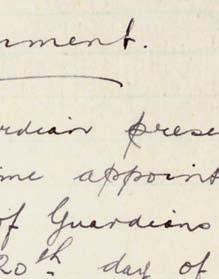 nment.
rdian prese
me appoint
of Guardians
20th day of